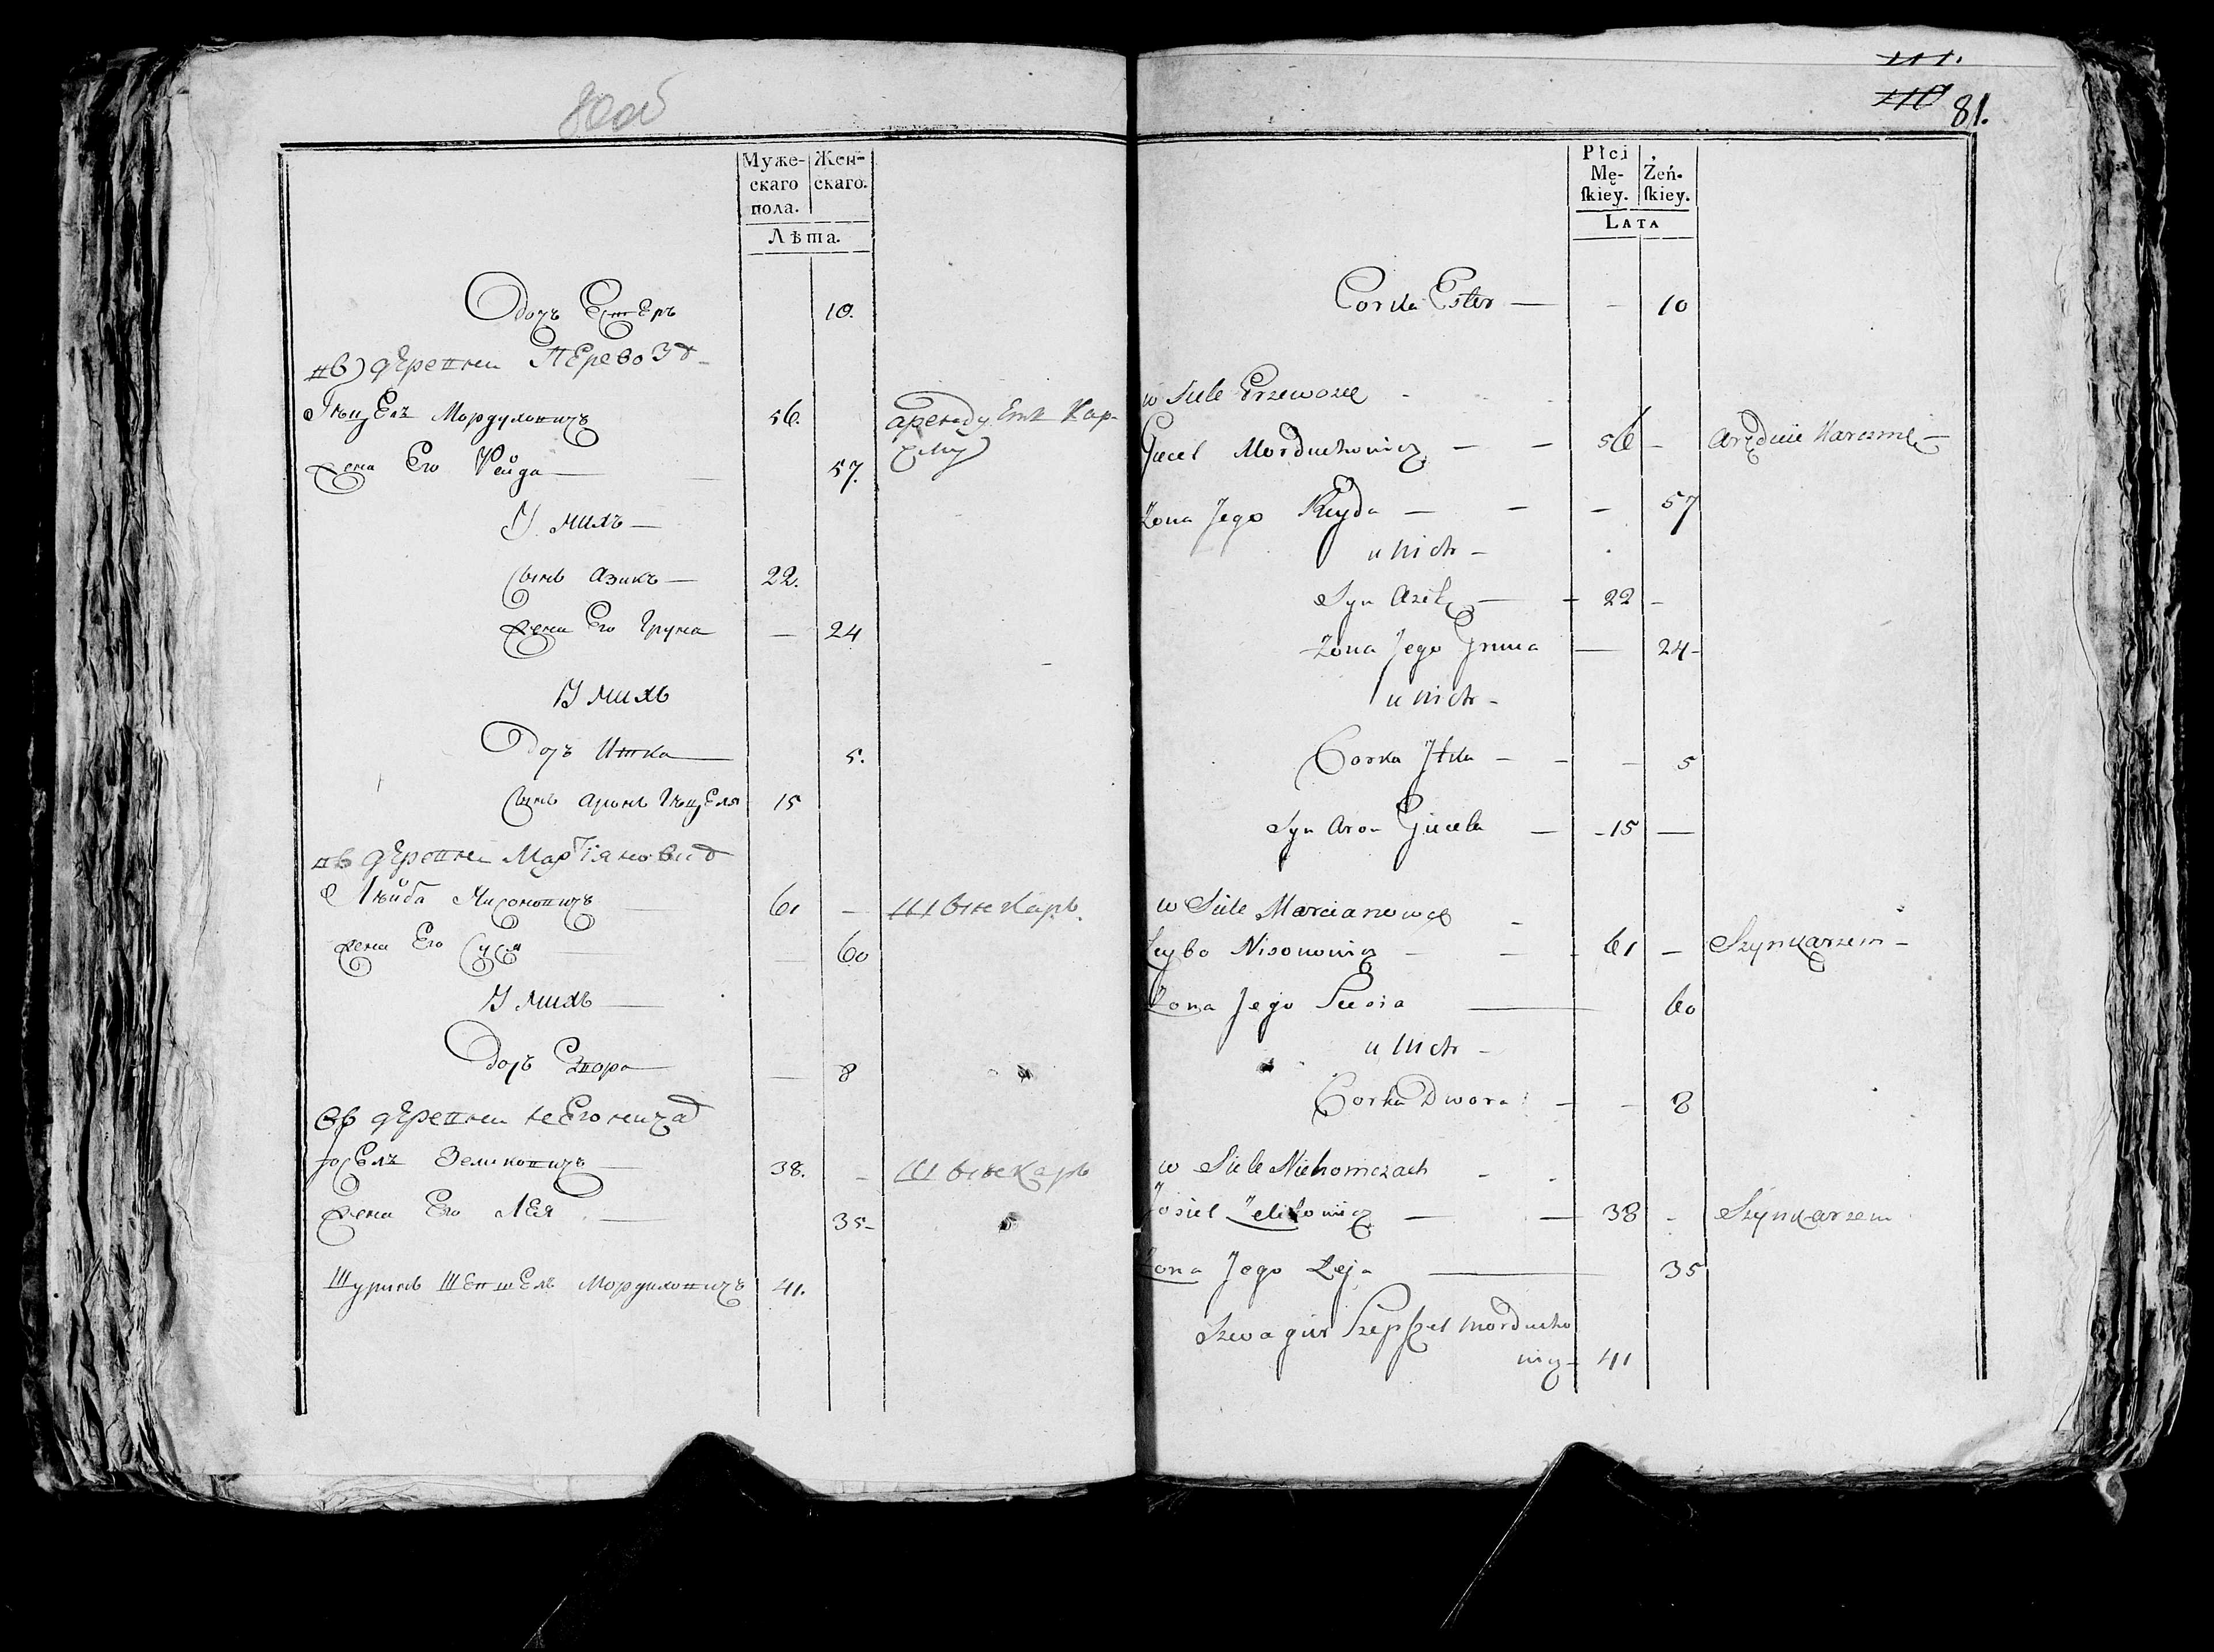 80об
Муже- Жен-
скаго скаго.
пола.
Лѣта.
дочь Естеръ 10.
въ деревни Перевозѣ
Гецель Мордуховичъ 56. арендуетъ кар-
жена Его Рейда 57. чму
У нихъ
сынъ Азикъ 22.
жена Его Груна — 24
У нихъ
дочь Итка 5.
сынъ Аронъ Гецеля 15
въ деревни Мартіяновцѣ
Лейба Нисоновичъ 61 — шынкаръ.
жена Его Суся — 60
У нихъ
дочь Двора — 8
въ деревни Негоничахъ
Іосель Зеликовичъ 38. — шынкаръ
жена Его Лея 35
Шуринъ Шепшель Мордуховичъ 41.
111.
110 81.
Płci Żeń-
Mę- skiey.
skiey.
LATA
Corka Ester — — 10
w Siele Przewozie
Giecel Morduchowicz — — 56 — Aręduie Karczmę —
Żona Jego Reyda — — — 57
u nich —
Syn Azik — 22 —
Żona Jego Gruna — 24 —
u nich —
Corka Itka — — — 5
Syn Aron Giecela — 15 —
w Siele Marcianowce
Leybo Nisonowicz — — 61 — Szynkarzem —
Żona Jego Susia — 60
u nich —
Corka Dwora — — 8
w Siele Niehoniczach
Josiel Zelikowicz — — 38 Szynkarzem
Żona Jego Leja — 35
Szwagier Szepszel Morducho
wicz — 41